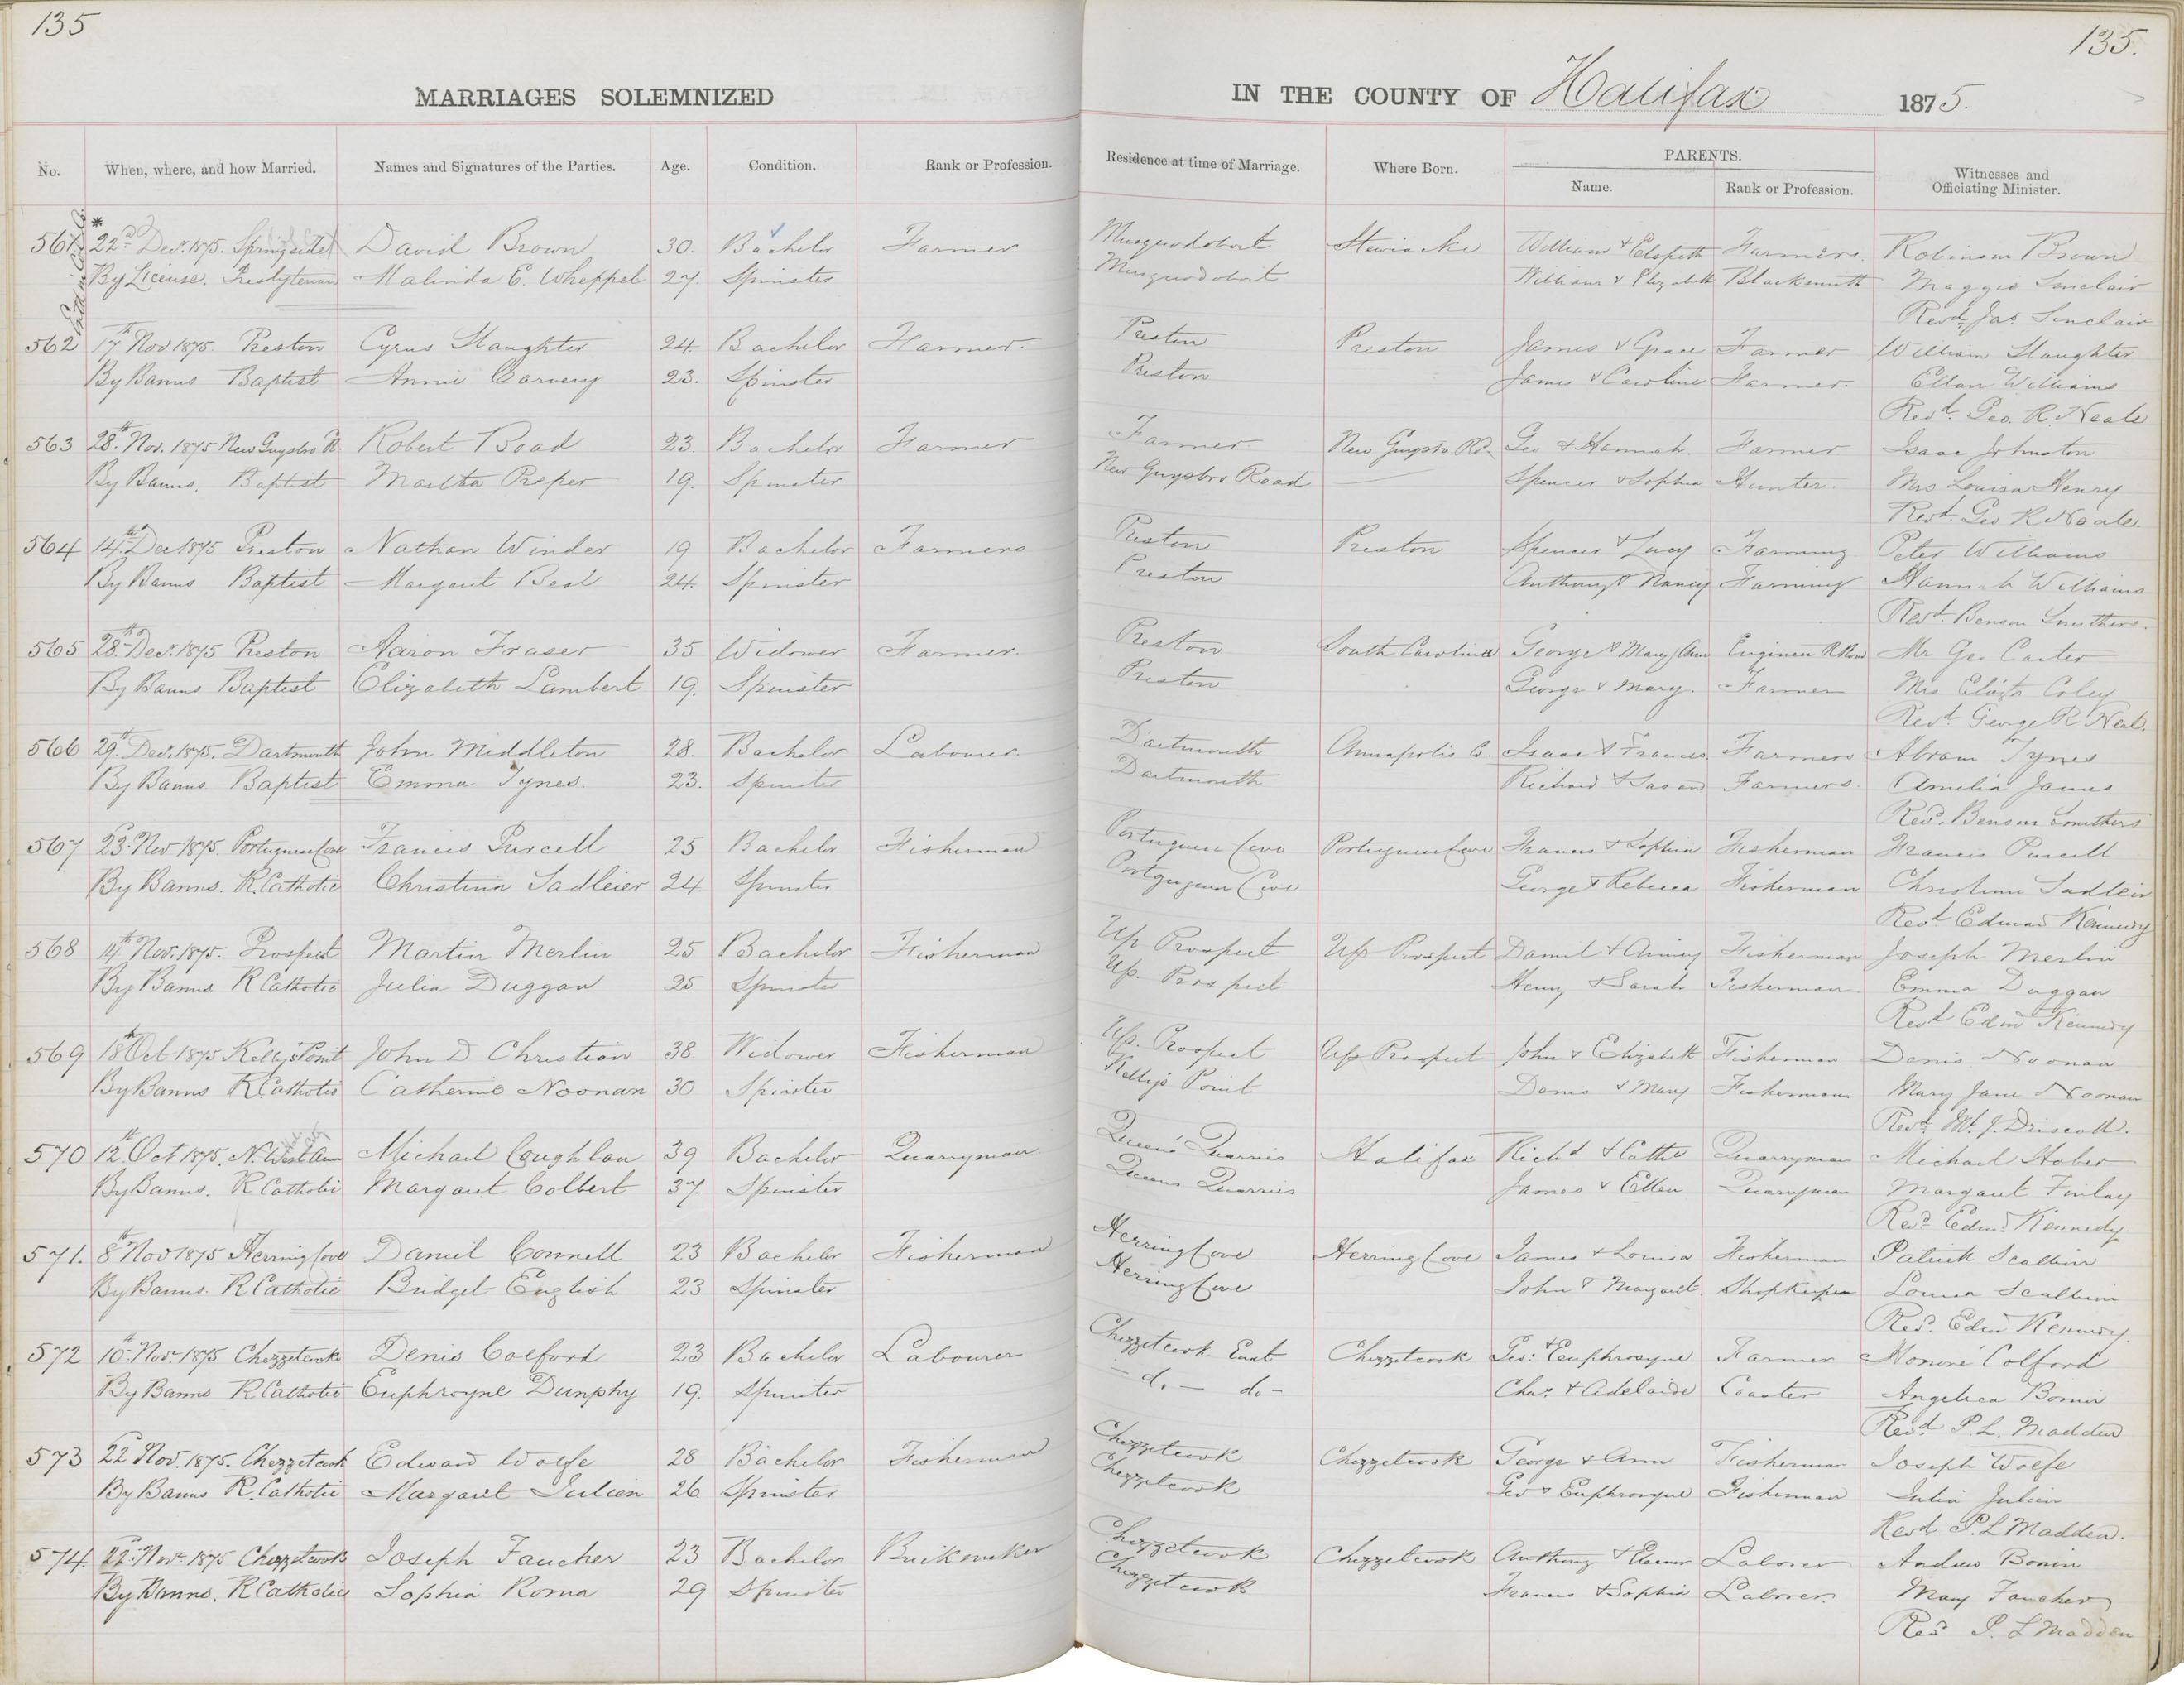 135
135.
MARRIAGES SOLEMNIZED
IN THE COUNTY OF Halifax 1875.
No. When, where, and how Married. Names and Signatures of the Parties. Age. Condition. Rank or Profession. Residence at time of Marriage. Where Born. PARENTS. Name. Rank or Profession. Witnesses and Officiating Minister.
561 * 22nd Decr. 1875. Springside David Brown 30. Bachelor Farmer Musquodoboit Stewiacke William & Elspeth Farmers. Robinson Brown
By License. Presbyterian Malinda E. Wheppel 27. Spinster Musquodoboit William & Elizabeth Blacksmith Maggie Sinclair
Revd. Jas. Sinclair
562 17th Nov 1875. Preston Cyrus Slaughter 24. Bachelor Farmer. Preston Preston James & Grace Farmer William Slaughter
By Banns Baptist Annie Carvery 23. Spinster Preston James & Caroline Farmer. Ellen Williams
Revd. Geo. R. Neale
563 28th Nov. 1875 New Guysboro R. Robert Boad 23. Bachelor Farmer Farmer New Guysbo Rd. Geo & Hannah. Farmer Isaac Johnston
By Banns. Baptist Martha Proper 19. Spinster New Guysboro Road Spencer & Sophia Hunter. Mrs Louisa Henry
Revd. Geo R Neale.
564 14th Dec 1875 Preston Nathan Winder 19 Bachelor Farmers Preston Preston Spencer & Lucy Farming Peter Williams
By Banns Baptist Margaret Beal 24. Spinster Preston Anthony & Nancy Farming Hannah Williams
Revd. Benson Smithers.
565 28th Decr. 1875 Preston Aaron Fraser 35 Widower Farmer. Preston South Carolina George & Mary Ann Engineer R Road Mr Geo Carter
By Banns Baptist Elizabeth Lambert 19. Spinster Preston George & Mary. Farmer Mrs Elizth Coley
Revd. George R Neal.
566 29th Decr. 1875. Dartmouth John Middleton 28. Bachelor Labourer. Dartmouth Annapolis Co. Isaac & Frances Farmers Abram Tynes
By Banns Baptist Emma Tynes. 23. Spinster Dartmouth Richard & Susan Farmers. Amelia James
Revd. Benson Smithers
567 23d Nov 1875. Portuguese Cove Francis Purcell 25 Bachelor Fisherman Portuguese Cove Portuguese Cove Francis & Sophia Fisherman Francis Purcell
By Banns. R. Catholic Christina Sadleier 24. Spinster Portuguese Cove George & Rebecca Fisherman Christina Sadleir
Revd Edward Kennedy
568 14th Nov. 1875. Prospect Martin Merlin 25 Bachelor Fisherman Up Prospect Up Prospect Daniel & Ainsey Fisherman Joseph Merlin
By Banns R Catholic Julia Duggan 25 Spinster Up. Prospect Henry & Sarah Fisherman Emma Duggan
Revd Edwd Kennedy
569 18th Oct 1875 Kelly's Point John D Christian 38. Widower Fisherman Up. Prospect Up Prospect John & Elizabeth Fisherman Denis Noonan
By Banns R. Catholic Catherine Noonan 30 Spinster Kelly's Point Denis & Mary Fisherman Mary Jane Noonan
Revd. M. J. Driscoll.
570 12th Oct 1875. N. West Arm Michael Coughlan 39 Bachelor Quarryman Queens' Quarries Halifax Richd & Cathe Quarryman Michael Hober
By Banns. R Catholic Margaret Colbert 37. Spinster Queens Quarries James & Ellen Quarryman Margaret Finlay
Revd. Edwd. Kennedy.
571. 8th Nov 1875 Herring Cove Daniel Connell 23 Bachelor Fisherman Herring Cove Herring Cove James & Louisa Fisherman Patrick Scallion
By Banns. R Catholic Bridget English 23 Spinster Herring Cove John & Margaret. Shopkeeper Louisa Scallion
Revd. Edwd Kennedy.
572 10th Novr 1875 Chezzetcook Denis Colford 23 Bachelor Labourer Chezzetcook East Chezzetcook Geo: & Euphrosyne Farmer Honoré Colford
By Banns R Catholic Euphrosyne Dunphy 19. Spinster - do - do - Chas. & Adelaide Coaster Angelica Bonin
Revd P. L. Madden
573 22d Nov. 1875. Chezzetcook Edward Wolfe 28 Bachelor Fisherman Chezzetcook Chezzetcook George & Ann Fisherman Joseph Wolfe
By Banns R. Catholic Margaret Julien 26 Spinster Chezzetcook Geo & Euphrosyne Fisherman Julia Julien
Revd P. L Madden.
574. 22d Novr 1875 Chezzetcook Joseph Faucher 23 Bachelor Brickmaker Chezzetcook Chezzetcook Anthony & Eleanor Laborer Andrew Bonin
By Banns. R Catholic Sophia Roma 29 Spinster Chezzetcook Francis & Sophia Laborer. Mary Faucher
Revd P. L Madden